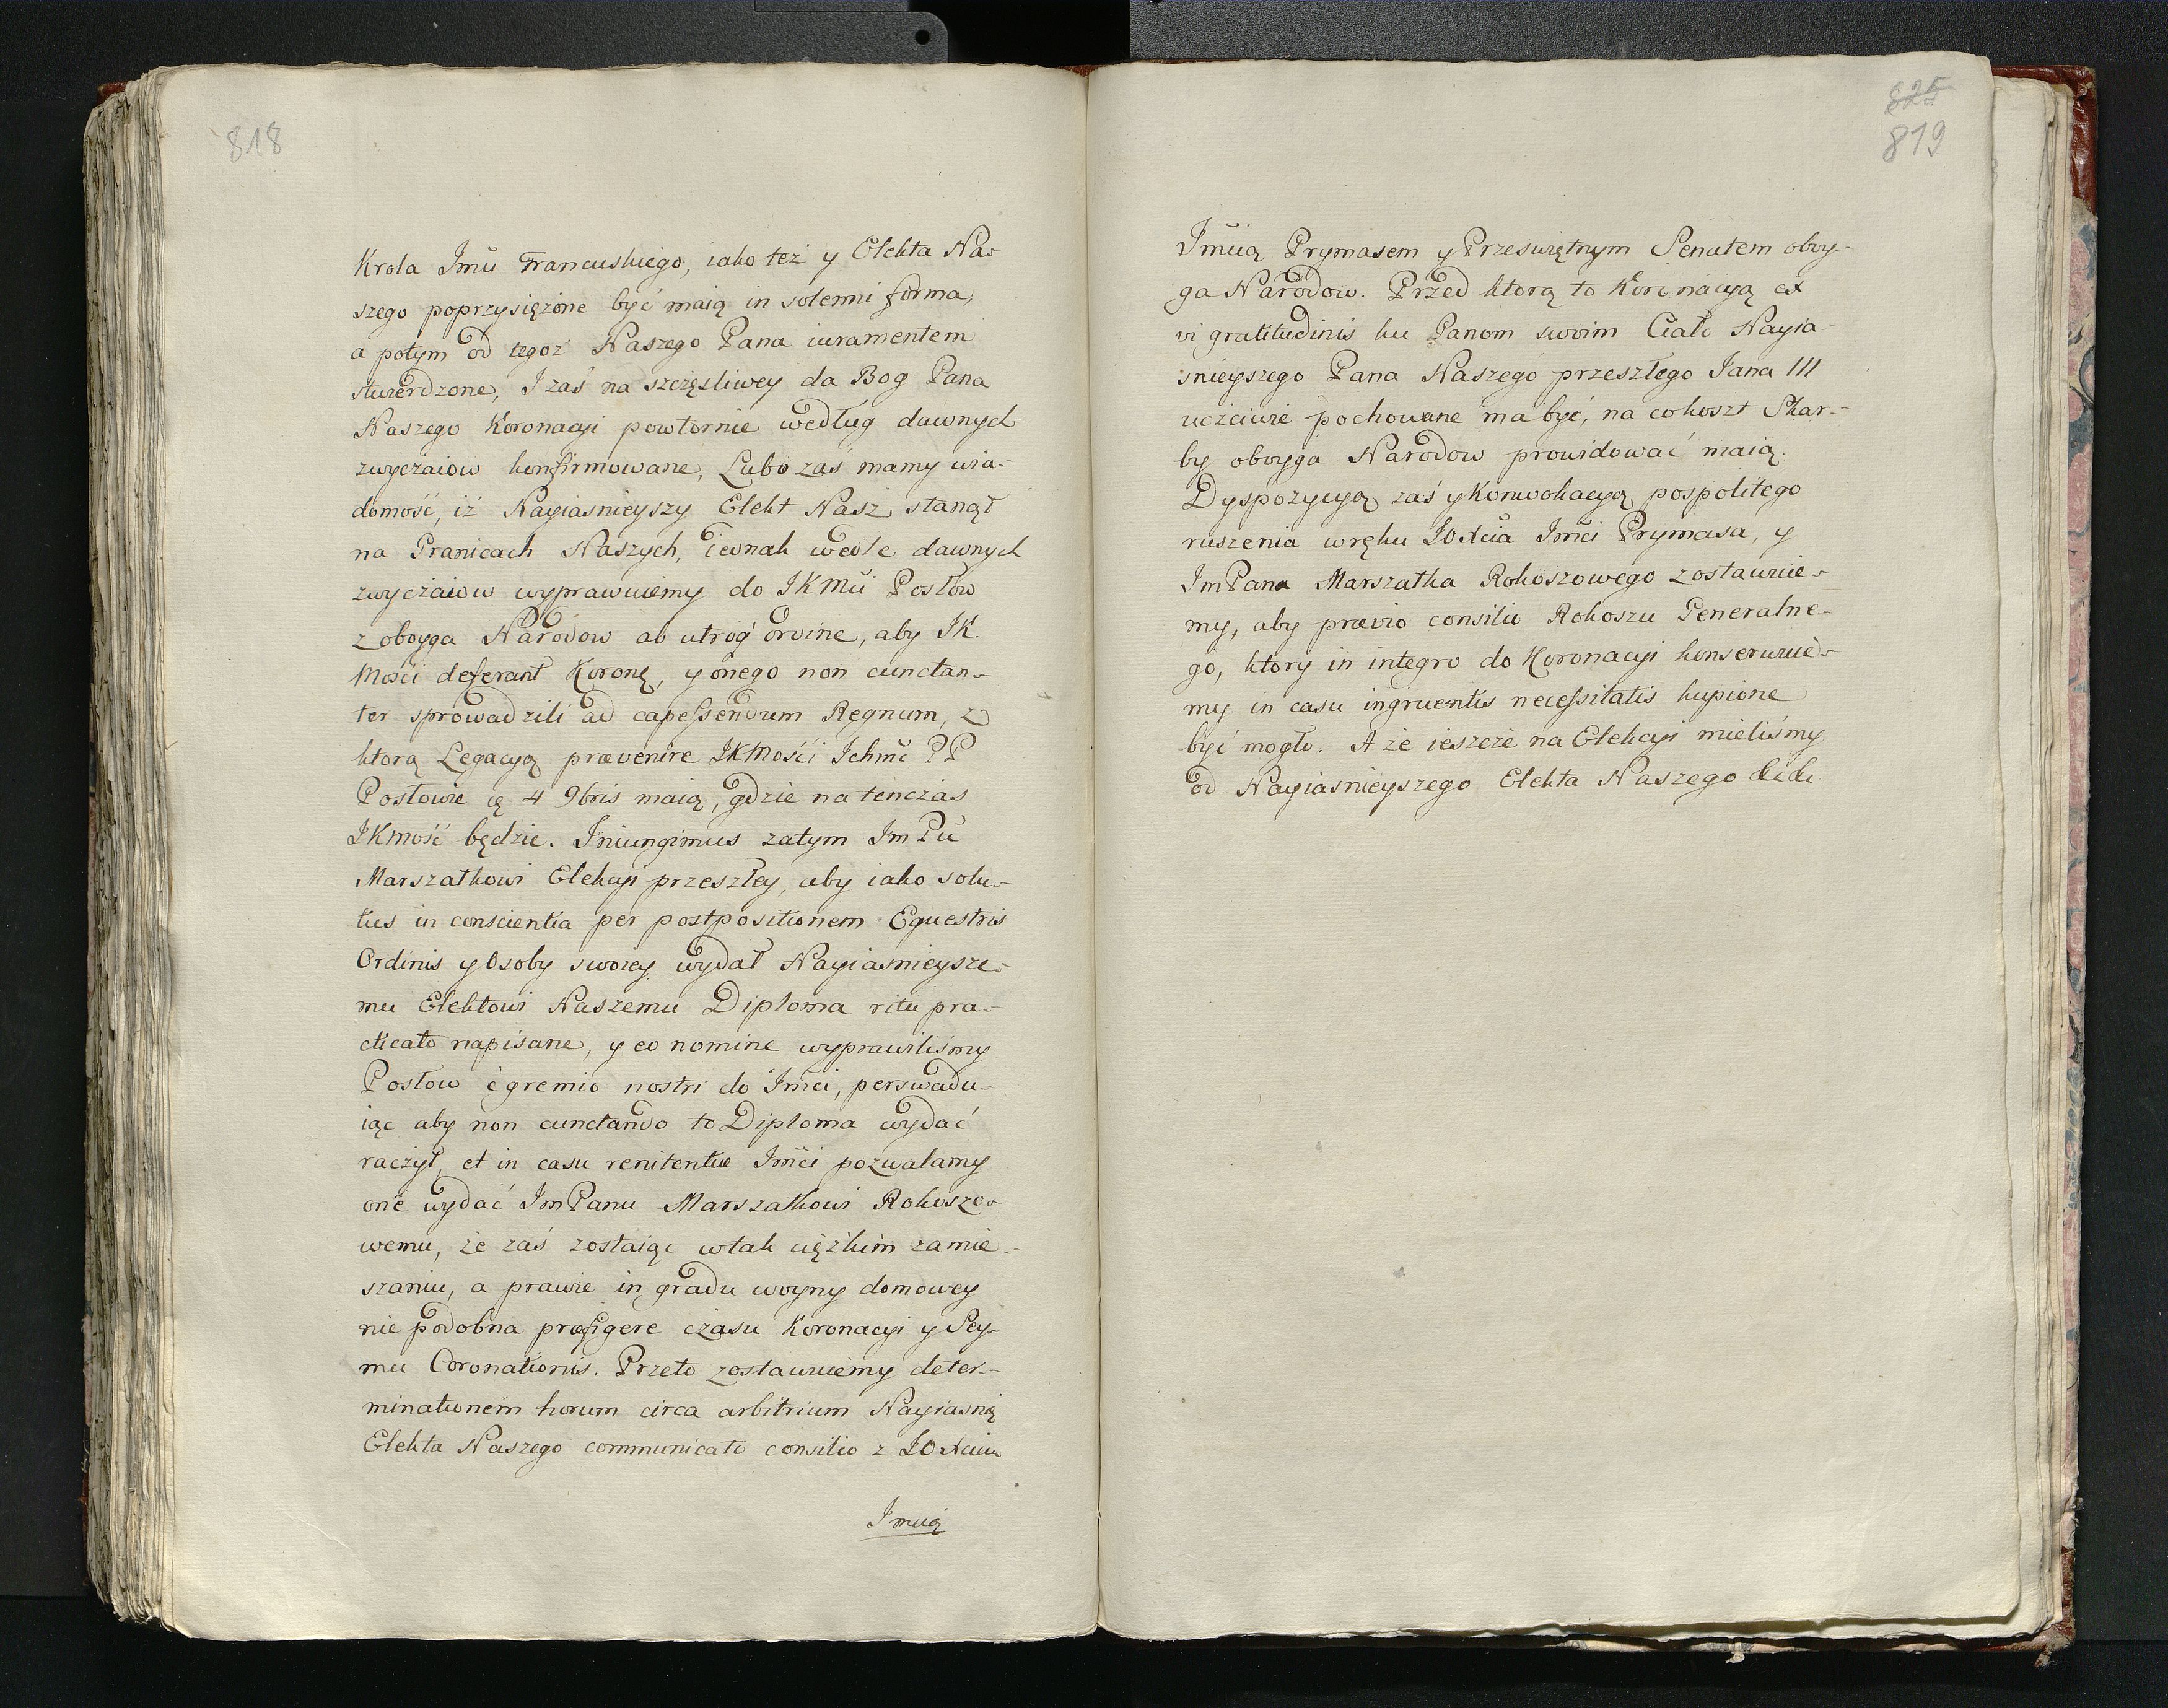 818
Krola Jmũ Francuskiego, iako też y Elekta Na-
szego poprzysięzone być maią in solenni forma,
a potym od tegoz Naszego Pana iuramentem
stwierdzone, I zaś na szczęsliwey da Bog Pana
Naszego Koronacyi powtornie według dawnych
zwyczaiow konfirmowane, Lubo zaś mamy wia-
domość, iż Nayiasnieyszy Elekt Nasz stanął
na Granicach Naszych, iednak wedle dawnych
zwyczaiow wyprawuiemy do JKMći Posłow
z oboyga Narodow ab utróq ordine, aby JK
Mości deferant Koronę, y onego non cunctan-
ter sprowadzili ad capessendum Regnum, z
ktorą Legacyą prævenire JKMości Ichmć PP
Posłowie 4 9bris maią, gdzie natenczas
JKmość będzie. Iniungimus zatym Jm Pũ
Marszałkowi Elekcyi przeszłey, aby iako solu-
tus in conscientia per postpositionem Equestris
Ordinis y Osoby swoiey wydał Nayiasnieysze-
mu Elektowi Naszemu Diploma ritu pra-
cticato napisane, y eo nomine wyprawiliśmy
Posłow è gremio nostri do Jmci, perswadu-
iąc aby non cunctando to Diploma wydać
raczył, et in casu renitentiæ Jmći pozwalamy
one wydać JmPanu Marszałkowi Rokoszo-
wemu, że zaś zostaiąc w tak ciężkim zamie-
szaniu, a prawie in gradu woyny domowey
nie podobna præfigere czasu Koronacyi y Sey-
mu Coronationis. Przeto zostawuiemy deter-
minationem horum circa arbitrium Nayiasnię
Elekta Naszego communicato consilio z JOXciem
Jmcią
825
819
Jmcią Prymasem y Przeświętnym Senatem oboy-
ga Narodow. Przed ktorą to Koronacyą ex
vi gratitudinis ku Panom swoim Ciało Nayia-
snieyszego Pana Naszego przeszłego Jana III
uczciwie pochowane ma być, na co koszt Skar-
by oboyga Narodow prowidować maią.
Dyspozycyą zaś y Konwokacyą pospolitego
ruszenia w ręku JOXcia Jmći Prymasa, y
JmPana Marszałka Rokoszowego zostawuie-
my, aby prævio consilio Rokoszu Generalne-
go, ktory in integro do Koronacyi konserwuie-
my in casu ingruentis necessitatis kupione
być mogło. A że ieszcze na Elekcyi mieliśmy
od Nayiasnieyszego Elekta Naszego